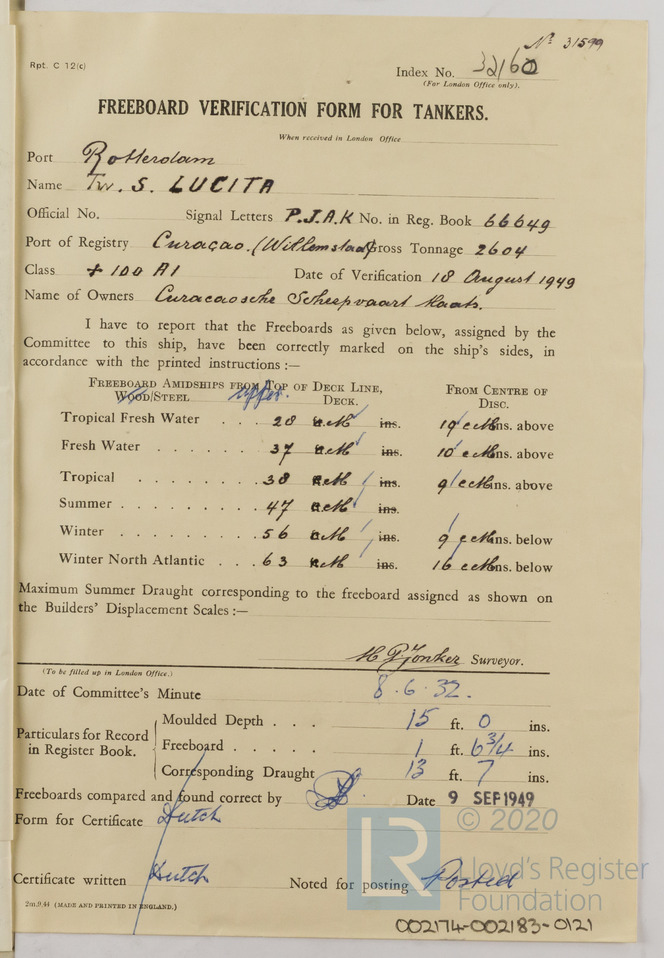 Nº 31599
Rpt. C 12(c)
Index No. 32160
(For London Office only).
FREEBOARD VERIFICATION FORM FOR TANKERS.
When received in London Office
Port Rotterdam
Name Tw. S. LUCITA
Official No. Signal Letters P.J.A.K No. in Reg. Book 66649
Port of Registry Curaçao. (Willemstad) Gross Tonnage 2604
Class + 100 A1 Date of Verification 18 August 1949
Name of Owners Curacaosche Scheepvaart Maats.
I have to report that the Freeboards as given below, assigned by the
Committee to this ship, have been correctly marked on the ship's sides, in
accordance with the printed instructions :—
Freeboard Amidships from Top of Deck Line, From Centre of
Wood/Steel upper. Deck. Disc.
Tropical Fresh Water . . . 28 cM ins. 19 cM ins. above
Fresh Water . . . 37 cM ins. 10 cM ins. above
Tropical . . . . . . . . 38 cM ins. 9 cM ins. above
Summer . . . . . . . . 47 cM ins.
Winter . . . . . . . . 56 cM ins. 9 cM ins. below
Winter North Atlantic . . . 63 cM ins. 16 cM ins. below
Maximum Summer Draught corresponding to the freeboard assigned as shown on
the Builders' Displacement Scales :—
H P Jonker Surveyor.
(To be filled up in London Office.)
Date of Committee's Minute 8.6.32.
Particulars for Record in Register Book.
Moulded Depth . . . 15 ft. 0 ins.
Freeboard . . . . . 1 ft. 6 3/4 ins.
Corresponding Draught 13 ft. 7 ins.
Freeboards compared and found correct by Date 9 SEP 1949
Form for Certificate Dutch
© 2020
LR
Lloyd's Register
Foundation
Certificate written Dutch Noted for posting Posted
2m.9.44 (MADE AND PRINTED IN ENGLAND.)
002174-002183-0121